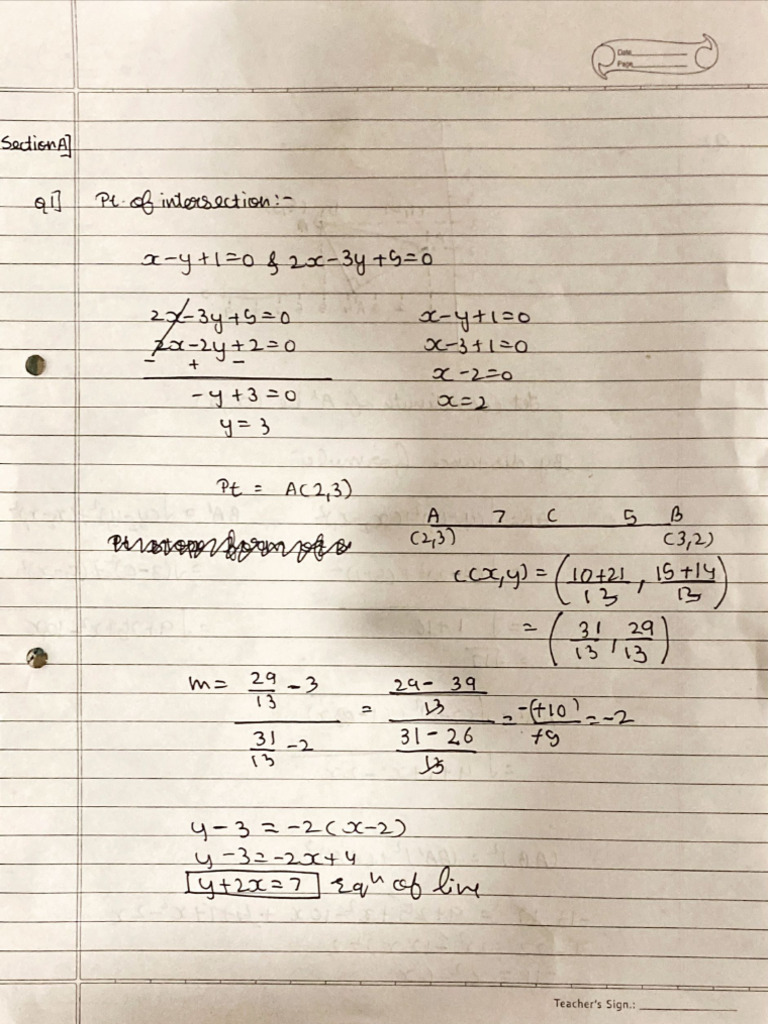 Date
Page
Section A]
Q1] Pt. of intersection:-
x-y+1=0 & 2x-3y+5=0
2x-3y+5=0 x-y+1=0
2x-2y+2=0 x-3+1=0
- + - x-2=0
-y+3=0 x=2
y=3
Pt = A(2,3)
A 7 C 5 B
(2,3) (3,2)
C(x,y) = (10+21/13, 15+14/13)
= (31/13, 29/13)
m = (29/13 - 3)/(31/13 - 2) = ((29-39)/13)/((31-26)/13) = -(+10)/+5 = -2
y-3 = -2(x-2)
y-3=-2x+4
y+2x=7 Eqn of line
Teacher's Sign.: